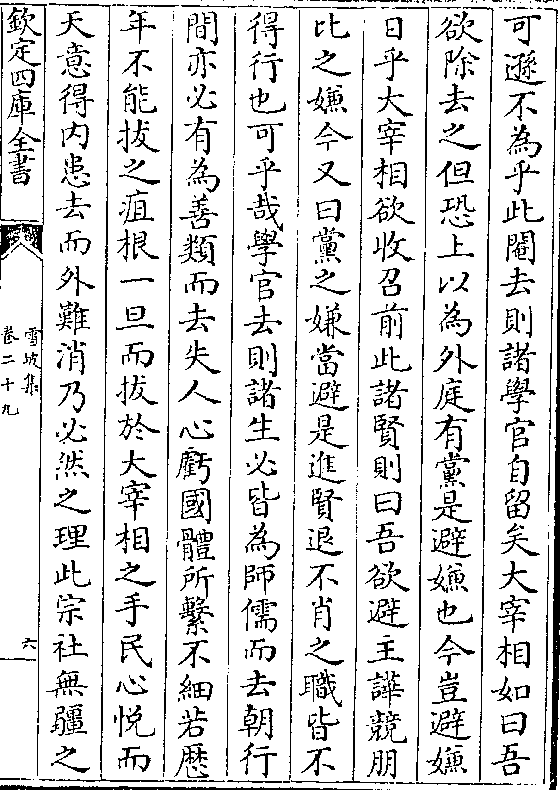 可遜不為乎此閹去則諸學官自留矣大宰相如曰吾
欲除去之但恐上以為外庭有黨是避嫌也今豈避嫌
日乎大宰相欲收召前此諸賢則曰吾欲避主譁競朋
比之嫌今又曰黨之嫌當避是進賢退不肖之職皆不
得行也可乎哉學官去則諸生必皆為師儒而去朝行
間亦必有為善類而去失人心虧國體所繫不細若歷
年不能拔之疽根一旦而拔於大宰相之手民心悅而
天意得内患去而外難消乃必然之理此宗社無疆之
欽定四庫全書
雪坡集
卷二十九
六